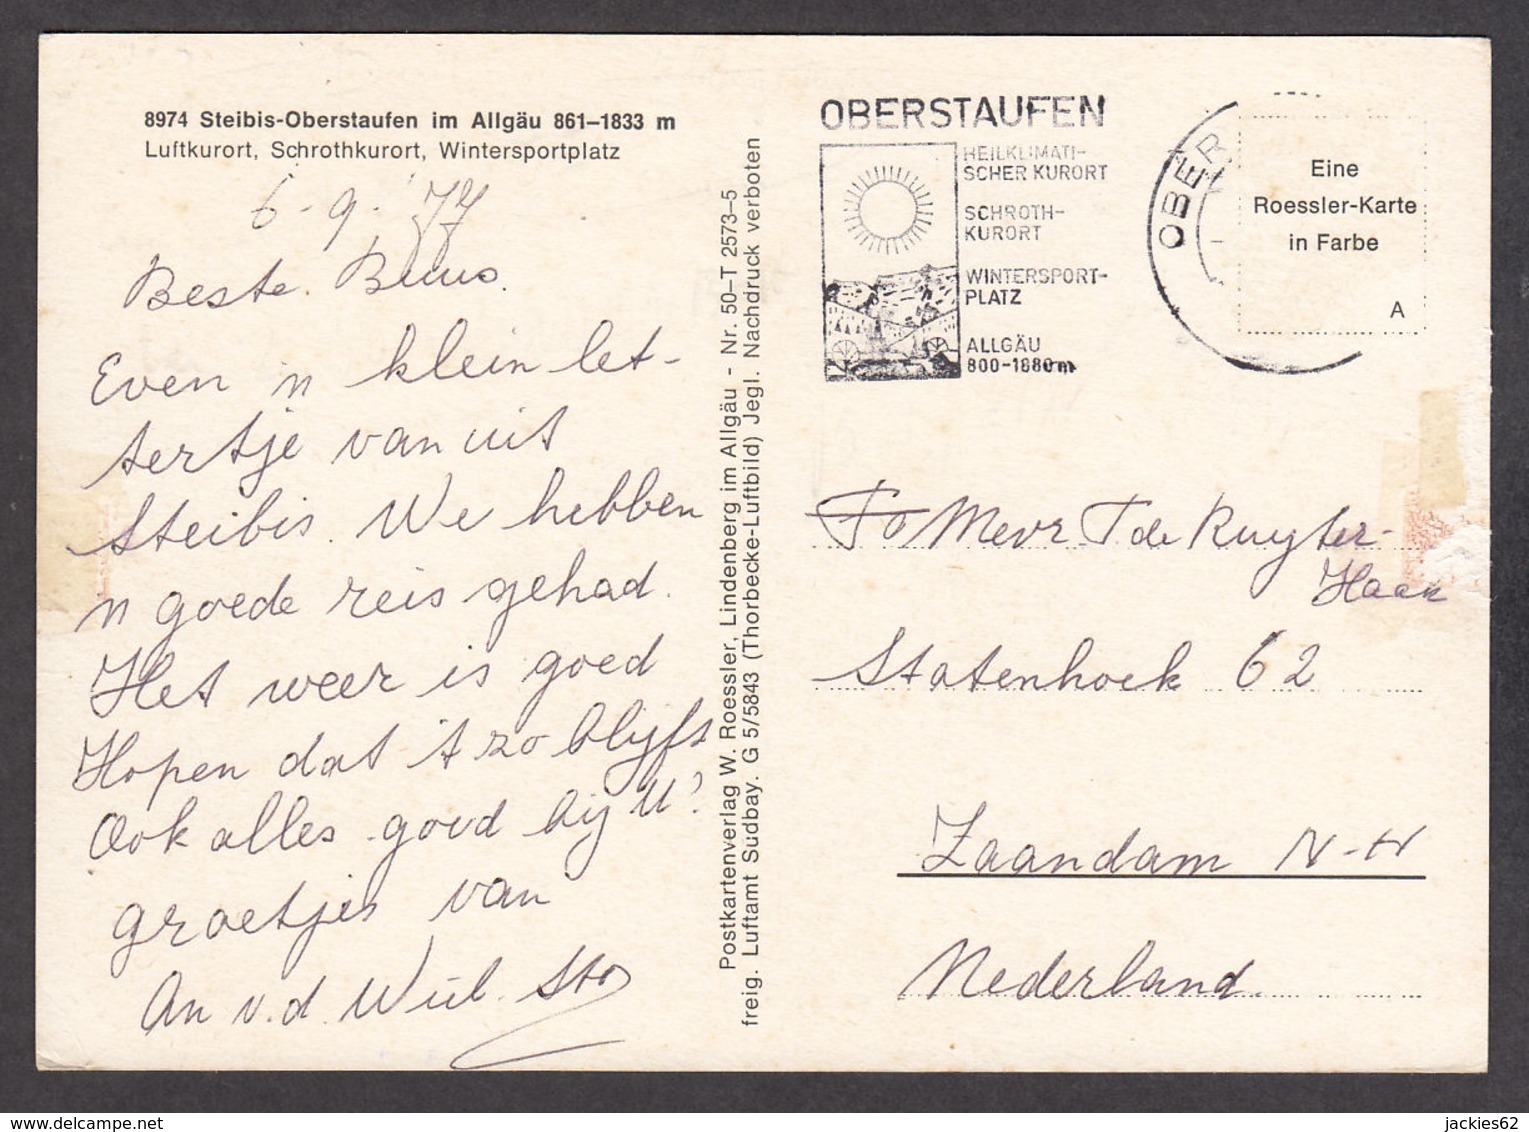 8974 Steibis-Oberstaufen im Allgäu 861–1833 m
Luftkurort, Schrothkurort, Wintersportplatz
6-9-'77
Beste
Even 'n klein let-
tertje van uit
Steibis. We hebben
'n goede reis gehad.
Het weer is goed
Hopen dat 't zo blijft
Ook alles goed bij U?
groetjes van
An v.d. Wiel.
Postkartenverlag W. Roessler, Lindenberg im Allgäu - Nr. 50–T 2573–5
freig. Luftamt Südbay. G 5/5843 (Thorbecke-Luftbild) Jegl. Nachdruck verboten
OBERSTAUFEN
HEILKLIMATI-
SCHER KURORT
SCHROTH-
KURORT
WINTERSPORT-
PLATZ
ALLGÄU
800-1880m
OBER
Eine
Roessler-Karte
in Farbe
A
Mevr T de Ruyter-
Haan
Statenhoek 62
Zaandam N-H
Nederland
jackies62